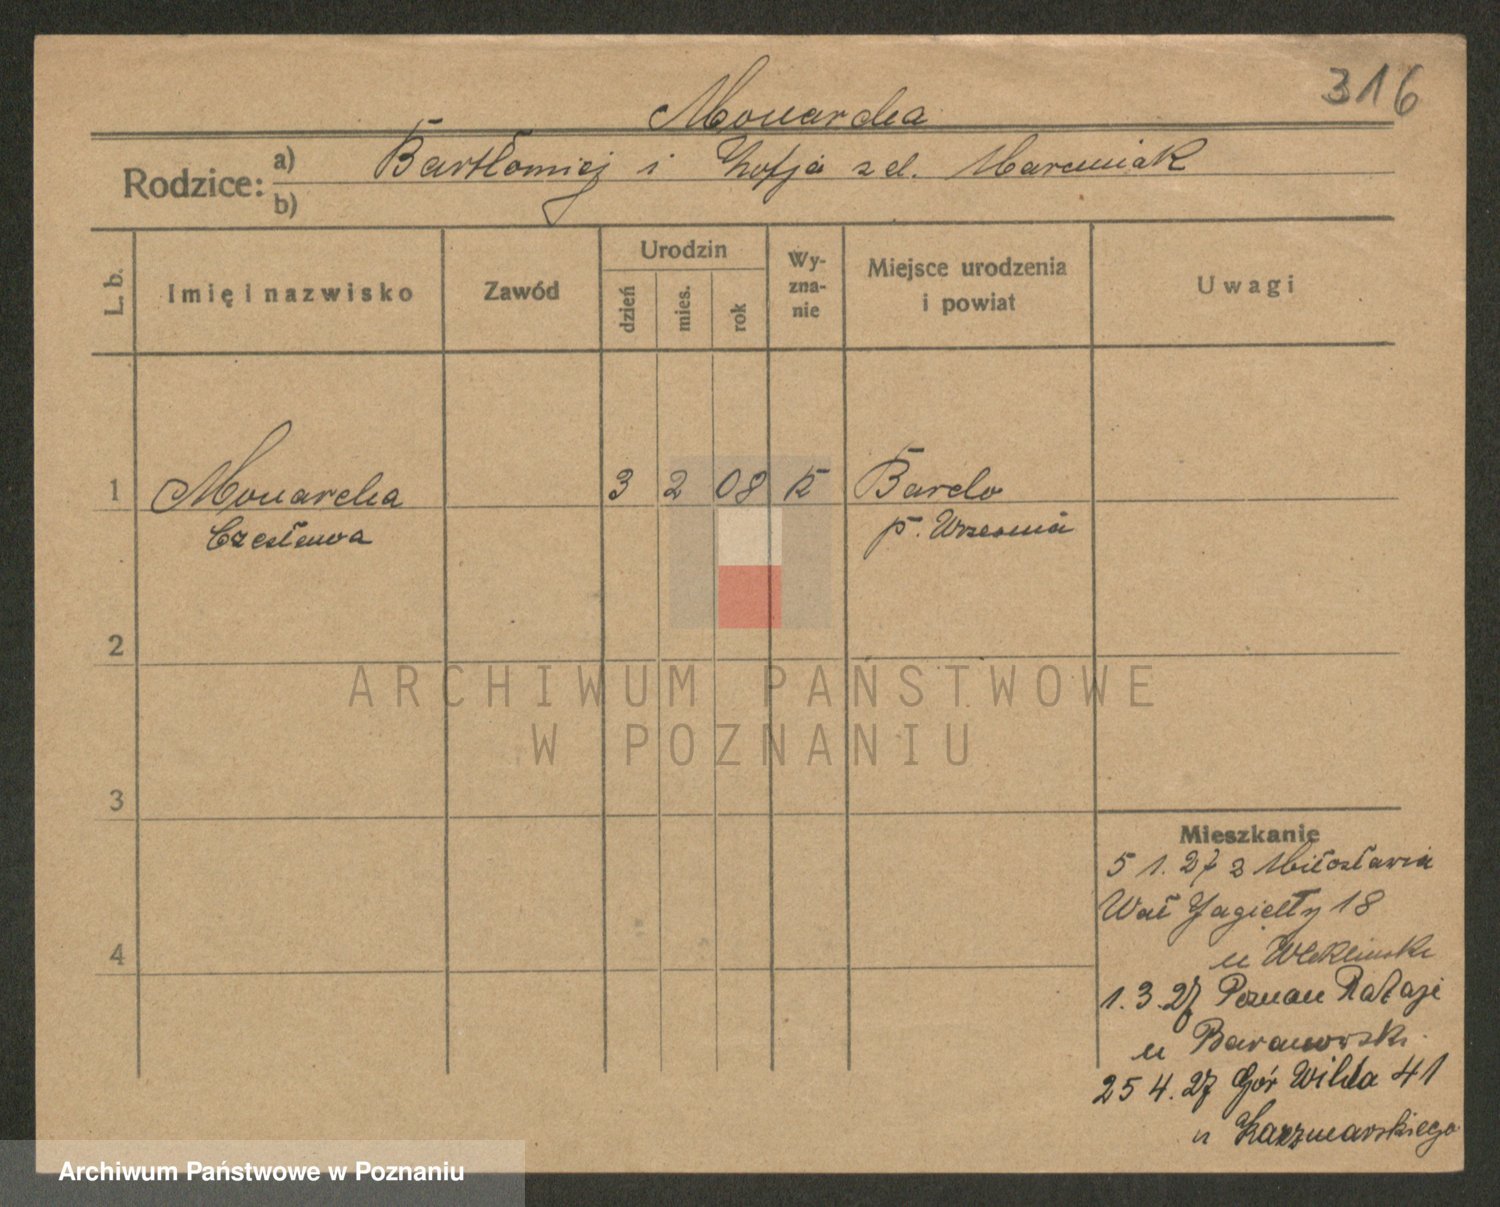 316
Monarcha
Rodzice: a) Bartłomiej i Zofja z d. Marciniak
b)
L. b.
Imię i nazwisko
Zawód
Urodzin
dzień
mies.
rok
Wy-
zna-
nie
Miejsce urodzenia
i powiat
Uwagi
1 Monarcha 3 2 08 K Bardo
Czesława p. Września
2
3
4
Mieszkanie
5 1. 27 z Miłosławia
Wał Jagiełły 18
u
1. 3. 27 Poznań Rataje
u Baranowski
25 4. 27 Gór Wilda 41
u Kaczmarskiego
ARCHIWUM PAŃSTWOWE
W POZNANIU
Archiwum Państwowe w Poznaniu